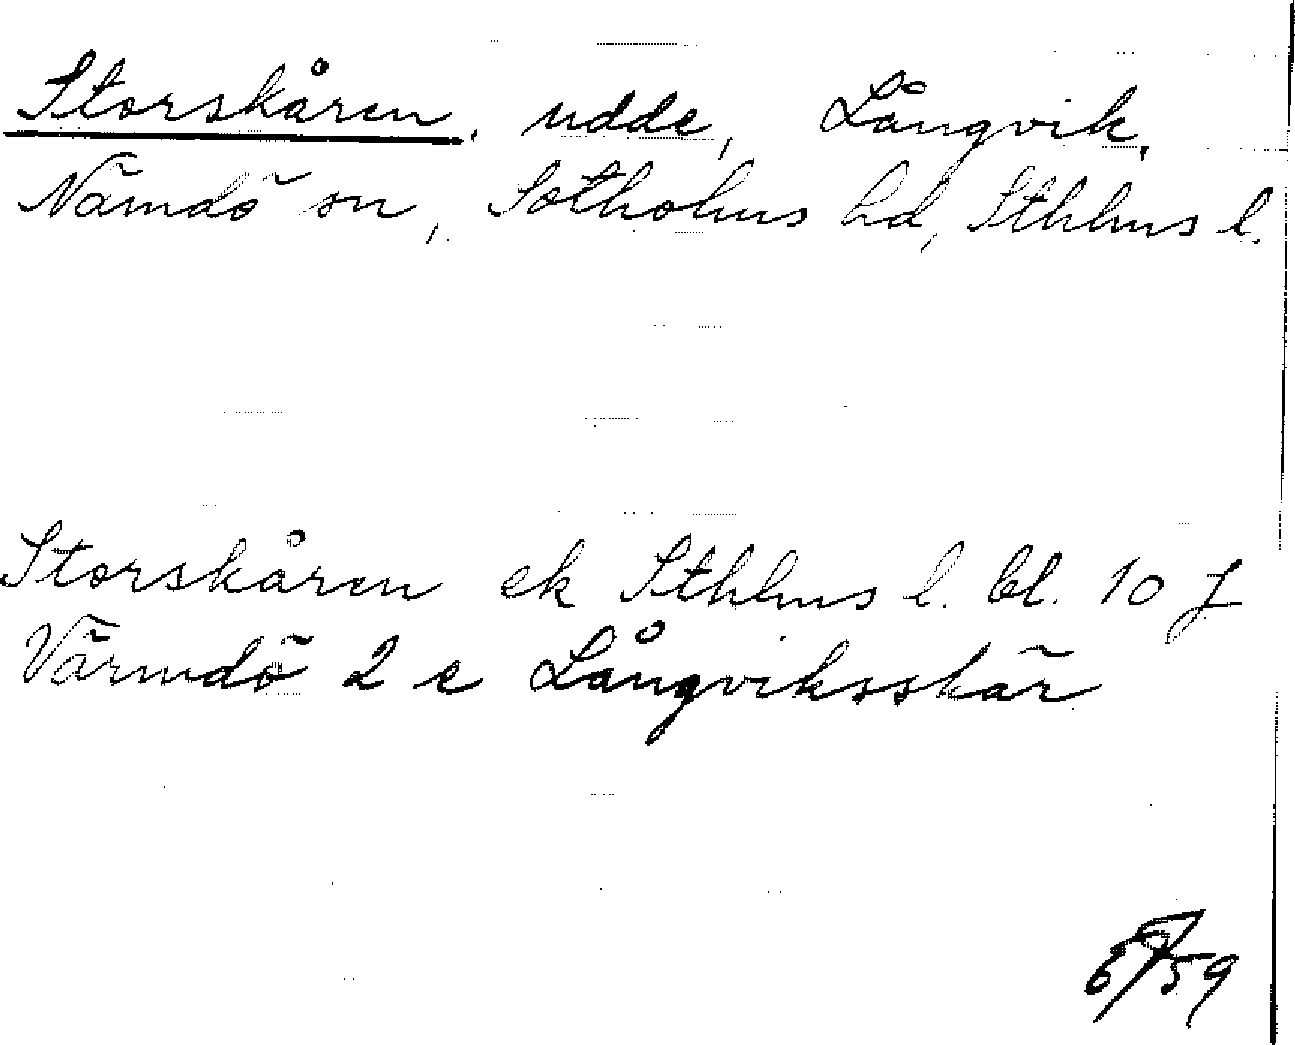 Storskåren, udde, Långvik,
Nämdö sn, Sotholms hd, Sthlms l.
Storskåren ek Sthlms l. bl. 10 J
Värmdö 2 e Långviksskär